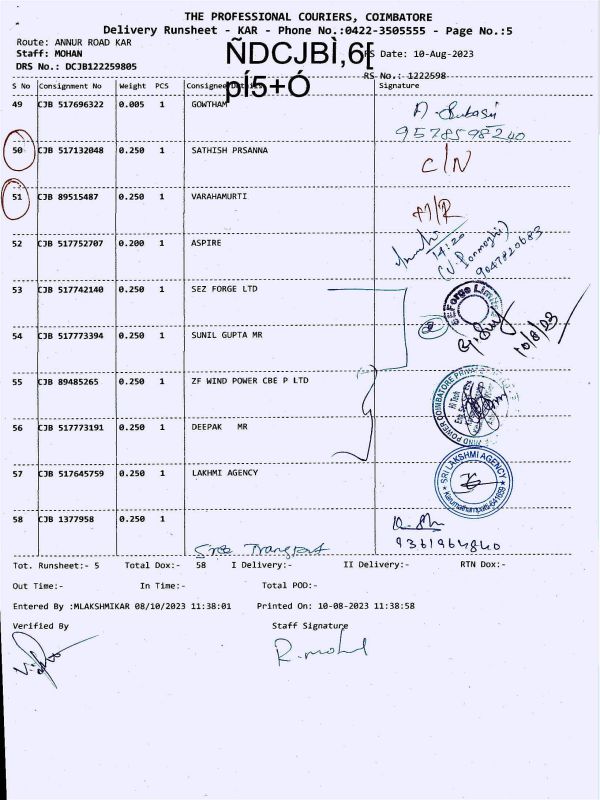 THE PROFESSIONAL COURIERS, COIMBATORE
Delivery Runsheet - KAR - Phone No.:0422-3505555 - Page No.:5
Route: ANNUR ROAD KAR
Staff: MOHAN
DRS No.: DCJB122259805
ÑDCJBÌ,6[
pÍ5+Ó
RS Date: 10-Aug-2023
RS No.: 1222598
S No Consignment No Weight PCS Consignee Details Signature
49 CJB 517696322 0.005 1 GOWTHAM
9578598240
50 CJB 517132048 0.250 1 SATHISH PRSANNA C/N
51 CJB 89515487 0.250 1 VARAHAMURTI
52 CJB 517752707 0.200 1 ASPIRE
14:20
9047820683
53 CJB 517742140 0.250 1 SEZ FORGE LTD
54 CJB 517773394 0.250 1 SUNIL GUPTA MR
10/8/23
55 CJB 89485265 0.250 1 ZF WIND POWER CBE P LTD
56 CJB 517773191 0.250 1 DEEPAK MR
57 CJB 517645759 0.250 1 LAKHMI AGENCY
SRI LAKSHMI AGENCY
Karumathampatti-641659
58 CJB 1377958 0.250 1
9361964840
Sree Transport
Tot. Runsheet:- 5 Total Dox:- 58 I Delivery:- II Delivery:- RTN Dox:-
Out Time:- In Time:- Total POD:-
Entered By :MLAKSHMIKAR 08/10/2023 11:38:01 Printed On: 10-08-2023 11:38:58
Verified By Staff Signature
R.mohd